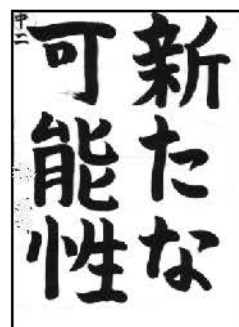 新たな
可能性
中二